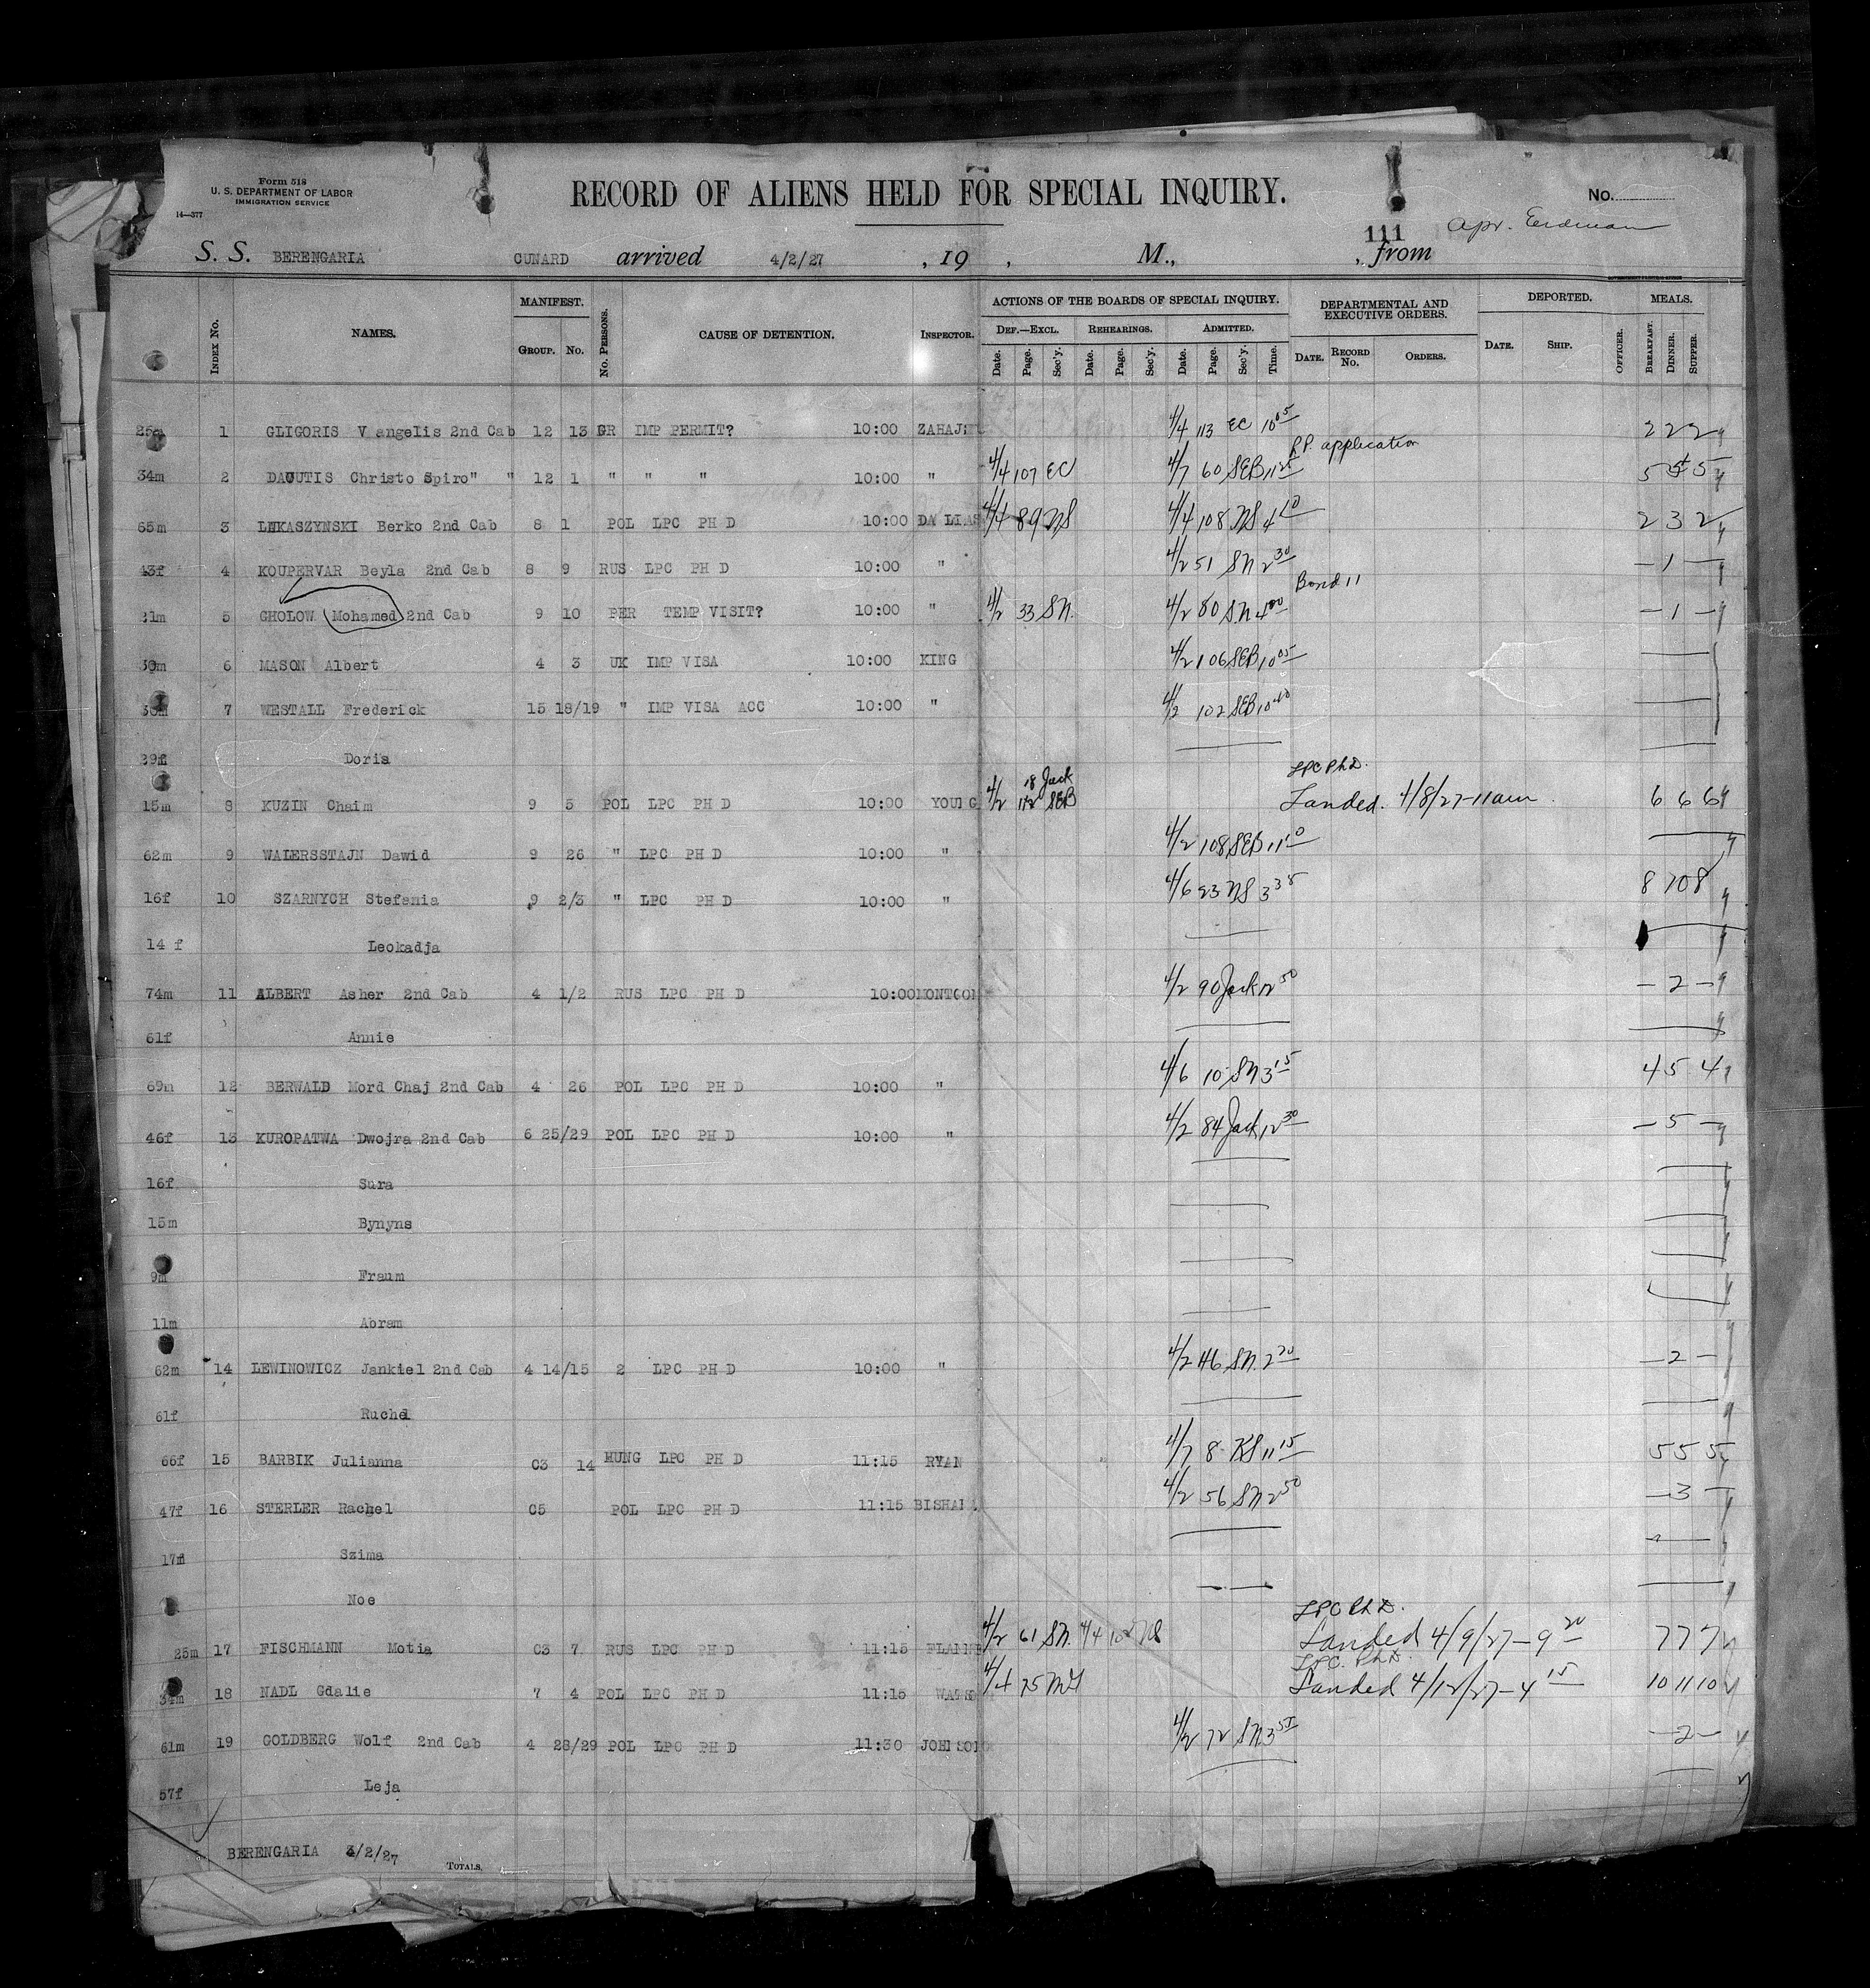 Form 518
U. S. DEPARTMENT OF LABOR
IMMIGRATION SERVICE
14—377
RECORD OF ALIENS HELD FOR SPECIAL INQUIRY.
No.
111
S. S. BERENGARIA CUNARD arrived 4/2/27 , 19 , M., , from
INDEX NO. NAMES. MANIFEST. GROUP. NO. NO. PERSONS. CAUSE OF DETENTION. INSPECTOR. ACTIONS OF THE BOARDS OF SPECIAL INQUIRY. DEF.—EXCL. Date. Page. Sec'y. REHEARINGS. Date. Page. Sec'y. ADMITTED. Date. Page. Sec'y. Time. DEPARTMENTAL AND EXECUTIVE ORDERS. DATE. RECORD No. ORDERS. DEPORTED. DATE. SHIP. OFFICER. MEALS. BREAKFAST. DINNER. SUPPER.
1 GLIGORIS Vangelis 2nd Cab 12 13 GR IMP PERMIT? 10:00 4/4 113 EC 10 05 2 2 2
application
34m 2 DAOUTIS Christo Spiro " " 12 1 " " " 10:00 " 4/4 107 EC 4/7 60 SEB 11 25 5 5 5
65m 3 LUKASZYNSKI Berko 2nd Cab 8 1 POL LPC PH D 10:00 4/4 89 NS 4/4 108 NS 4 10 2 3 2
43f 4 KOUPERVAR Beyla 2nd Cab 8 9 RUS LPC PH D 10:00 " 4/2 51 SN 2 30 — 1 —
Bond 11
21m 5 GHOLOW Mohamed 2nd Cab 9 10 PER TEMP VISIT? 10:00 " 4/2 33 SN. 4/2 80 SN 4 00 — 1 —
30m 6 MASON Albert 4 3 UK IMP VISA 10:00 KING 4/2 106 SEB 10 05
7 WESTALL Frederick 15 18/19 " IMP VISA ACC 10:00 " 4/2 102 SEB 10 40
29f Doris
18 Jack LPC Ph D.
15m 8 KUZIN Chaim 9 5 POL LPC PH D 10:00 YOUNG 4/2 112 SEB Landed. 4/8/27-11am 6 6 6
62m 9 WALERSSTAJN Dawid 9 26 " LPC PH D 10:00 " 4/2 108 SEB 11 10
16f 10 SZARNYCH Stefania 9 2/3 " LPC PH D 10:00 " 4/6 23 NS 3 35 8 10 8
14 f Leokadja
74m 11 ALBERT Asher 2nd Cab 4 1/2 RUS LPC PH D 10:00 4/2 90 Jack 12 50 — 2 —
61f Annie
69m 12 BERWALD Mord Chaj 2nd Cab 4 26 POL LPC PH D 10:00 " 4/6 10 SN 3 15 4 5 4
46f 13 KUROPATWA Dwojra 2nd Cab 6 25/29 POL LPC PH D 10:00 " 4/2 84 Jack 12 30 — 5 —
16f Sura
15m Bynyns
9m Fraum
11m Abram
62m 14 LEWINOWICZ Jankiel 2nd Cab 4 14/15 2 LPC PH D 10:00 " 4/2 46 SN. 2 20 — 2 —
61f Ruchel
66f 15 BARBIK Julianna C3 14 HUNG LPC PH D 11:15 RYAN 4/7 8 KS 11 15 5 5 5
47f 16 STERLER Rachel C5 POL LPC PH D 11:15 4/2 56 SN 2 50 — 3 —
Szima
Noe
LPC Ph D.
25m 17 FISCHMANN Motia C3 7 RUS LPC PH D 11:15 4/2 61 SN. 4/4 NS Landed 4/9/27 — 9 20 7 7 7
LPC. Ph D.
34m 18 NADL Gdalie 7 4 POL LPC PH D 11:15 4/4 75 Landed 4/12/27 — 4 15 10 11 10
61m 19 GOLDBERG Wolf 2nd Cab 4 28/29 POL LPC PH D 11:30 4/2 72 SN 3 — 2 —
57f Leja
BERENGARIA 4/2/27 TOTALS,